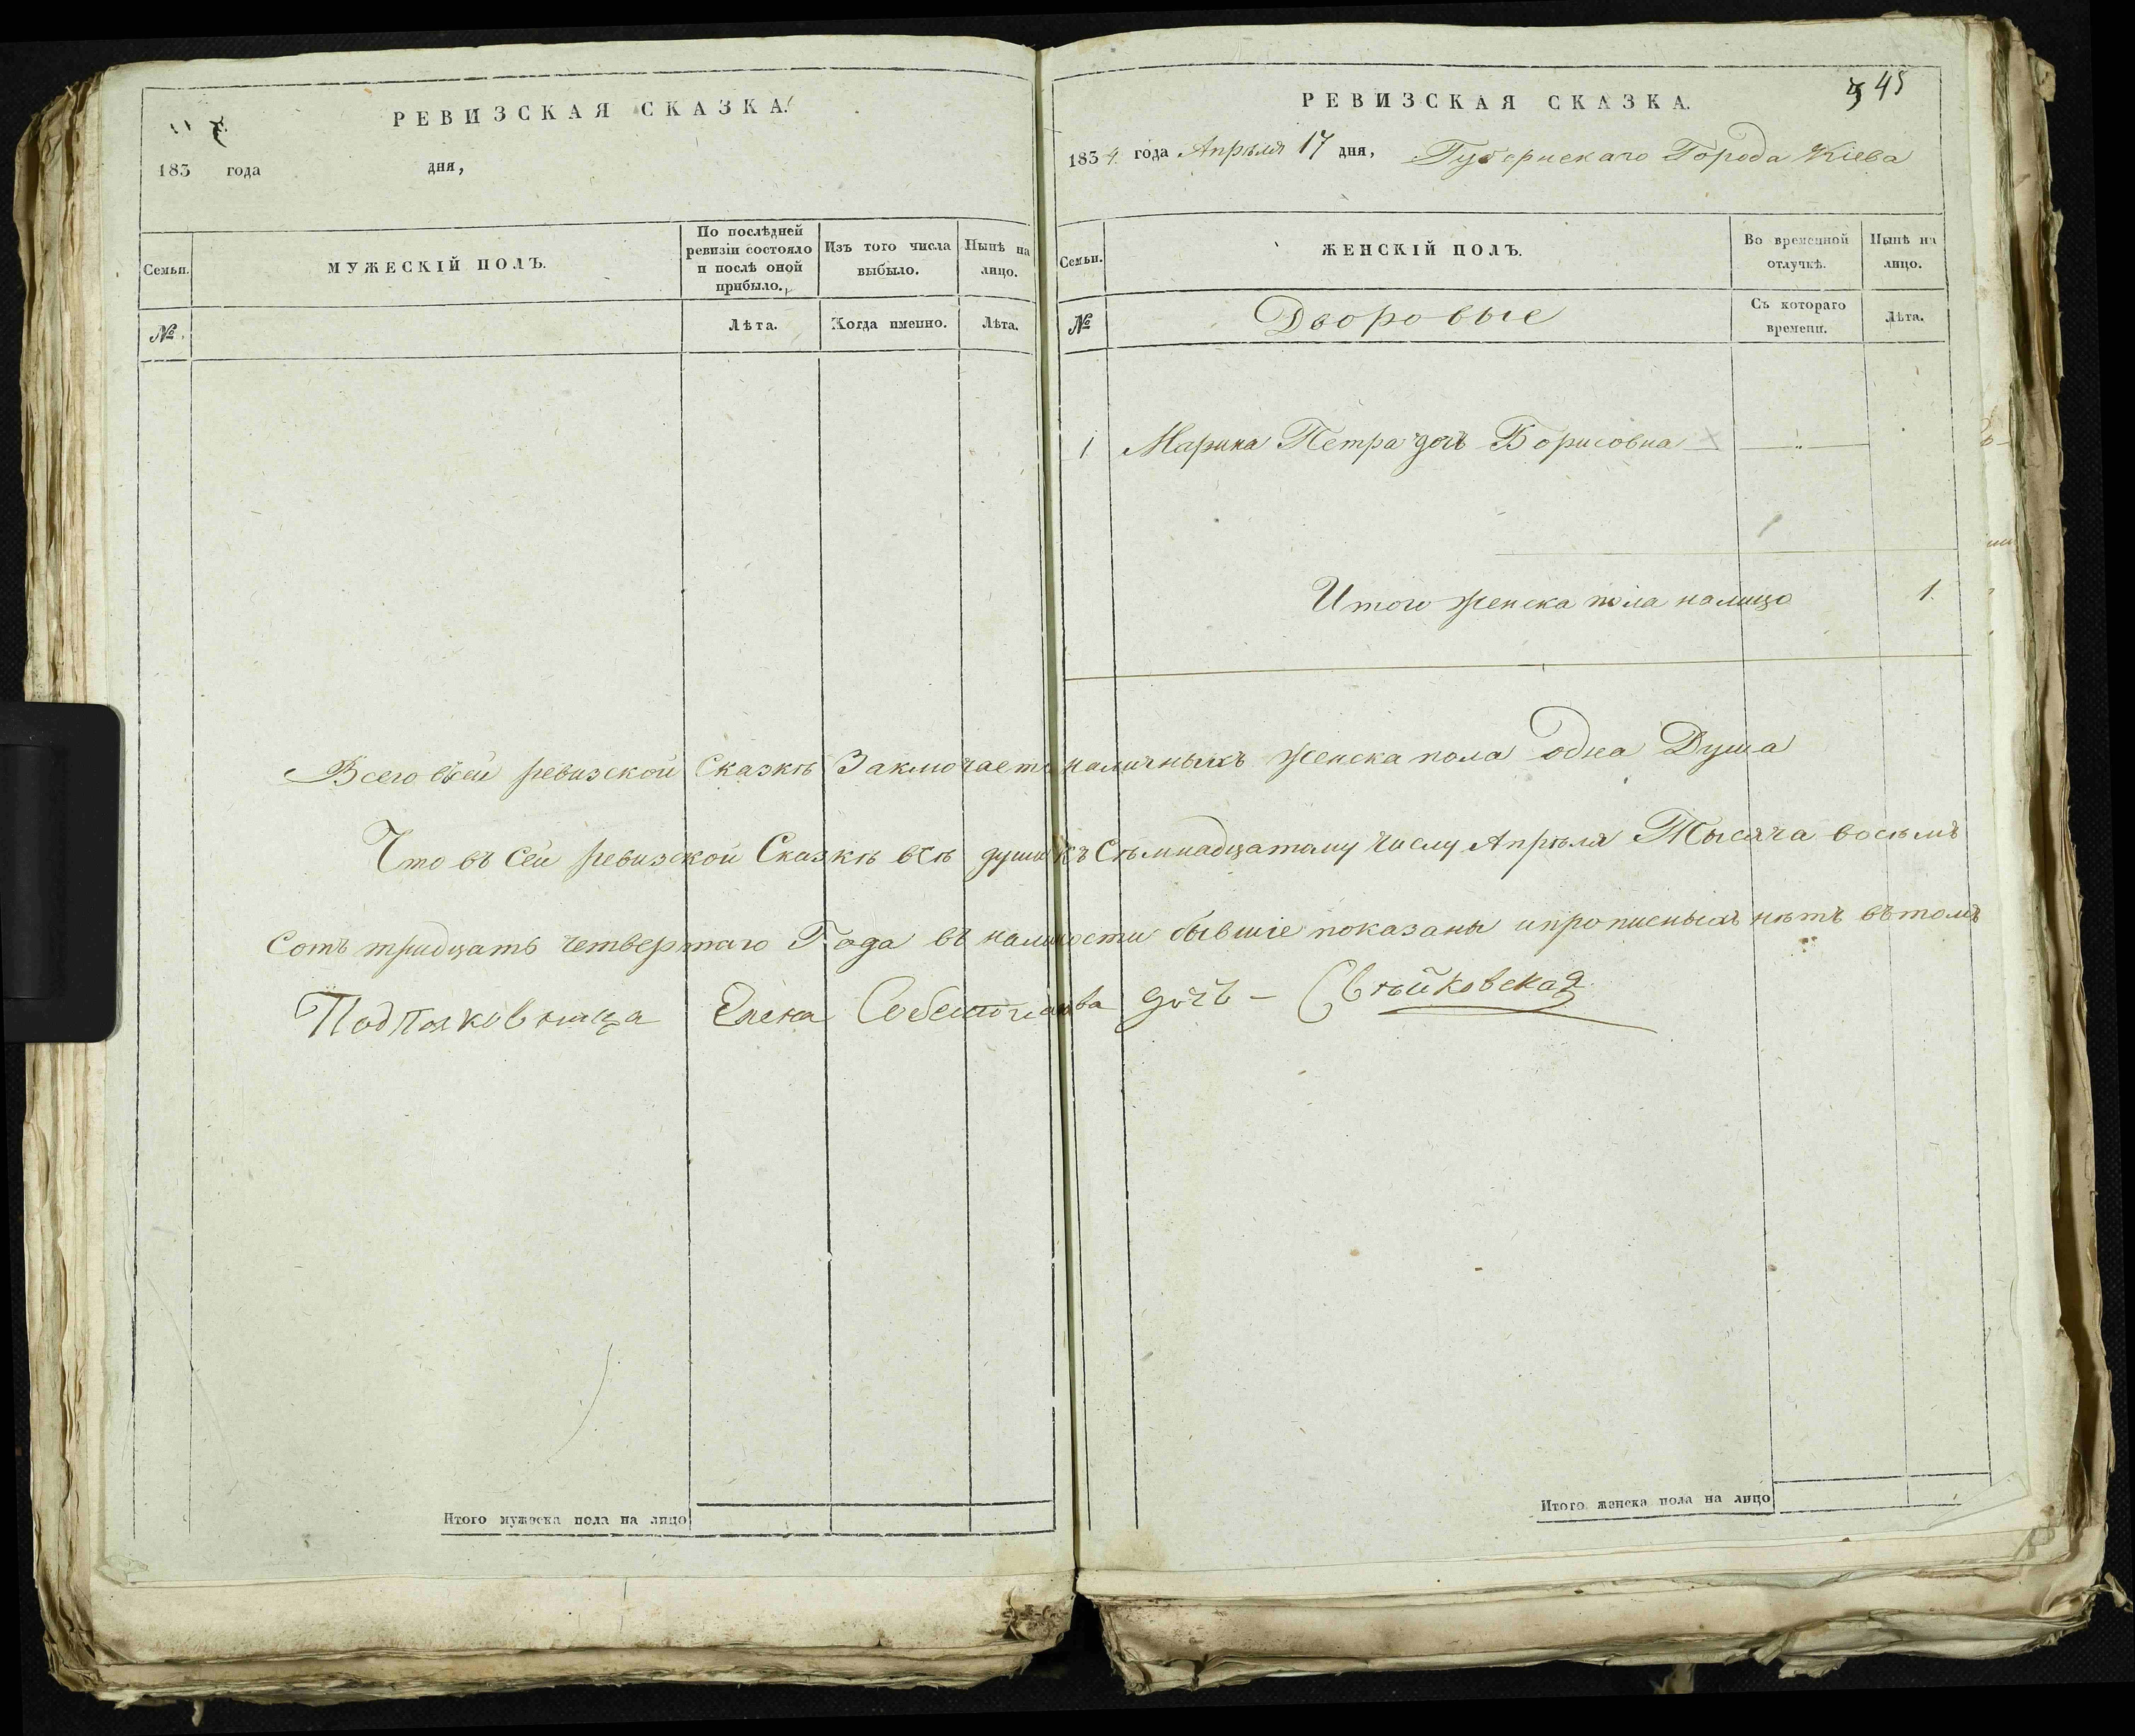 РЕВИЗСКАЯ СКАЗКА.
183 года дня,
Семьи.
МУЖЕСКІЙ ПОЛЪ.
По послѣдней ревизіи состояло и послѣ оной прибыло.
Изъ того числа выбыло.
Нынѣ на лицо.
№
Лѣта.
Когда именно.
Лѣта.
Итого мужеска пола на лицо
45
РЕВИЗСКАЯ СКАЗКА.
1834. года Апрѣля 17 дня, Губернскаго Города Кіева
Семьи.
ЖЕНСКІЙ ПОЛЪ.
Во временной отлучкѣ.
Нынѣ на лицо.
№
Дворовые
Съ котораго времени.
Лѣта.
1 Марина Петра дочь Борисовна
Итого женска пола налицо 1.
Всего всей ревизской Сказкѣ Заключаетъ наличныхъ женска пола одна Душа
Что въ сей ревизской Сказкѣ всѣ души къ Сѣмнадцатому числу Апрѣля Тысяча восѣмъ
сотъ тридцать четвертаго Года въ наличности бывшіе показаны ипрописныхъ нѣтъ вътомъ
Подполковница Елена дочь - Свѣйковская
Итого женска пола на лицо